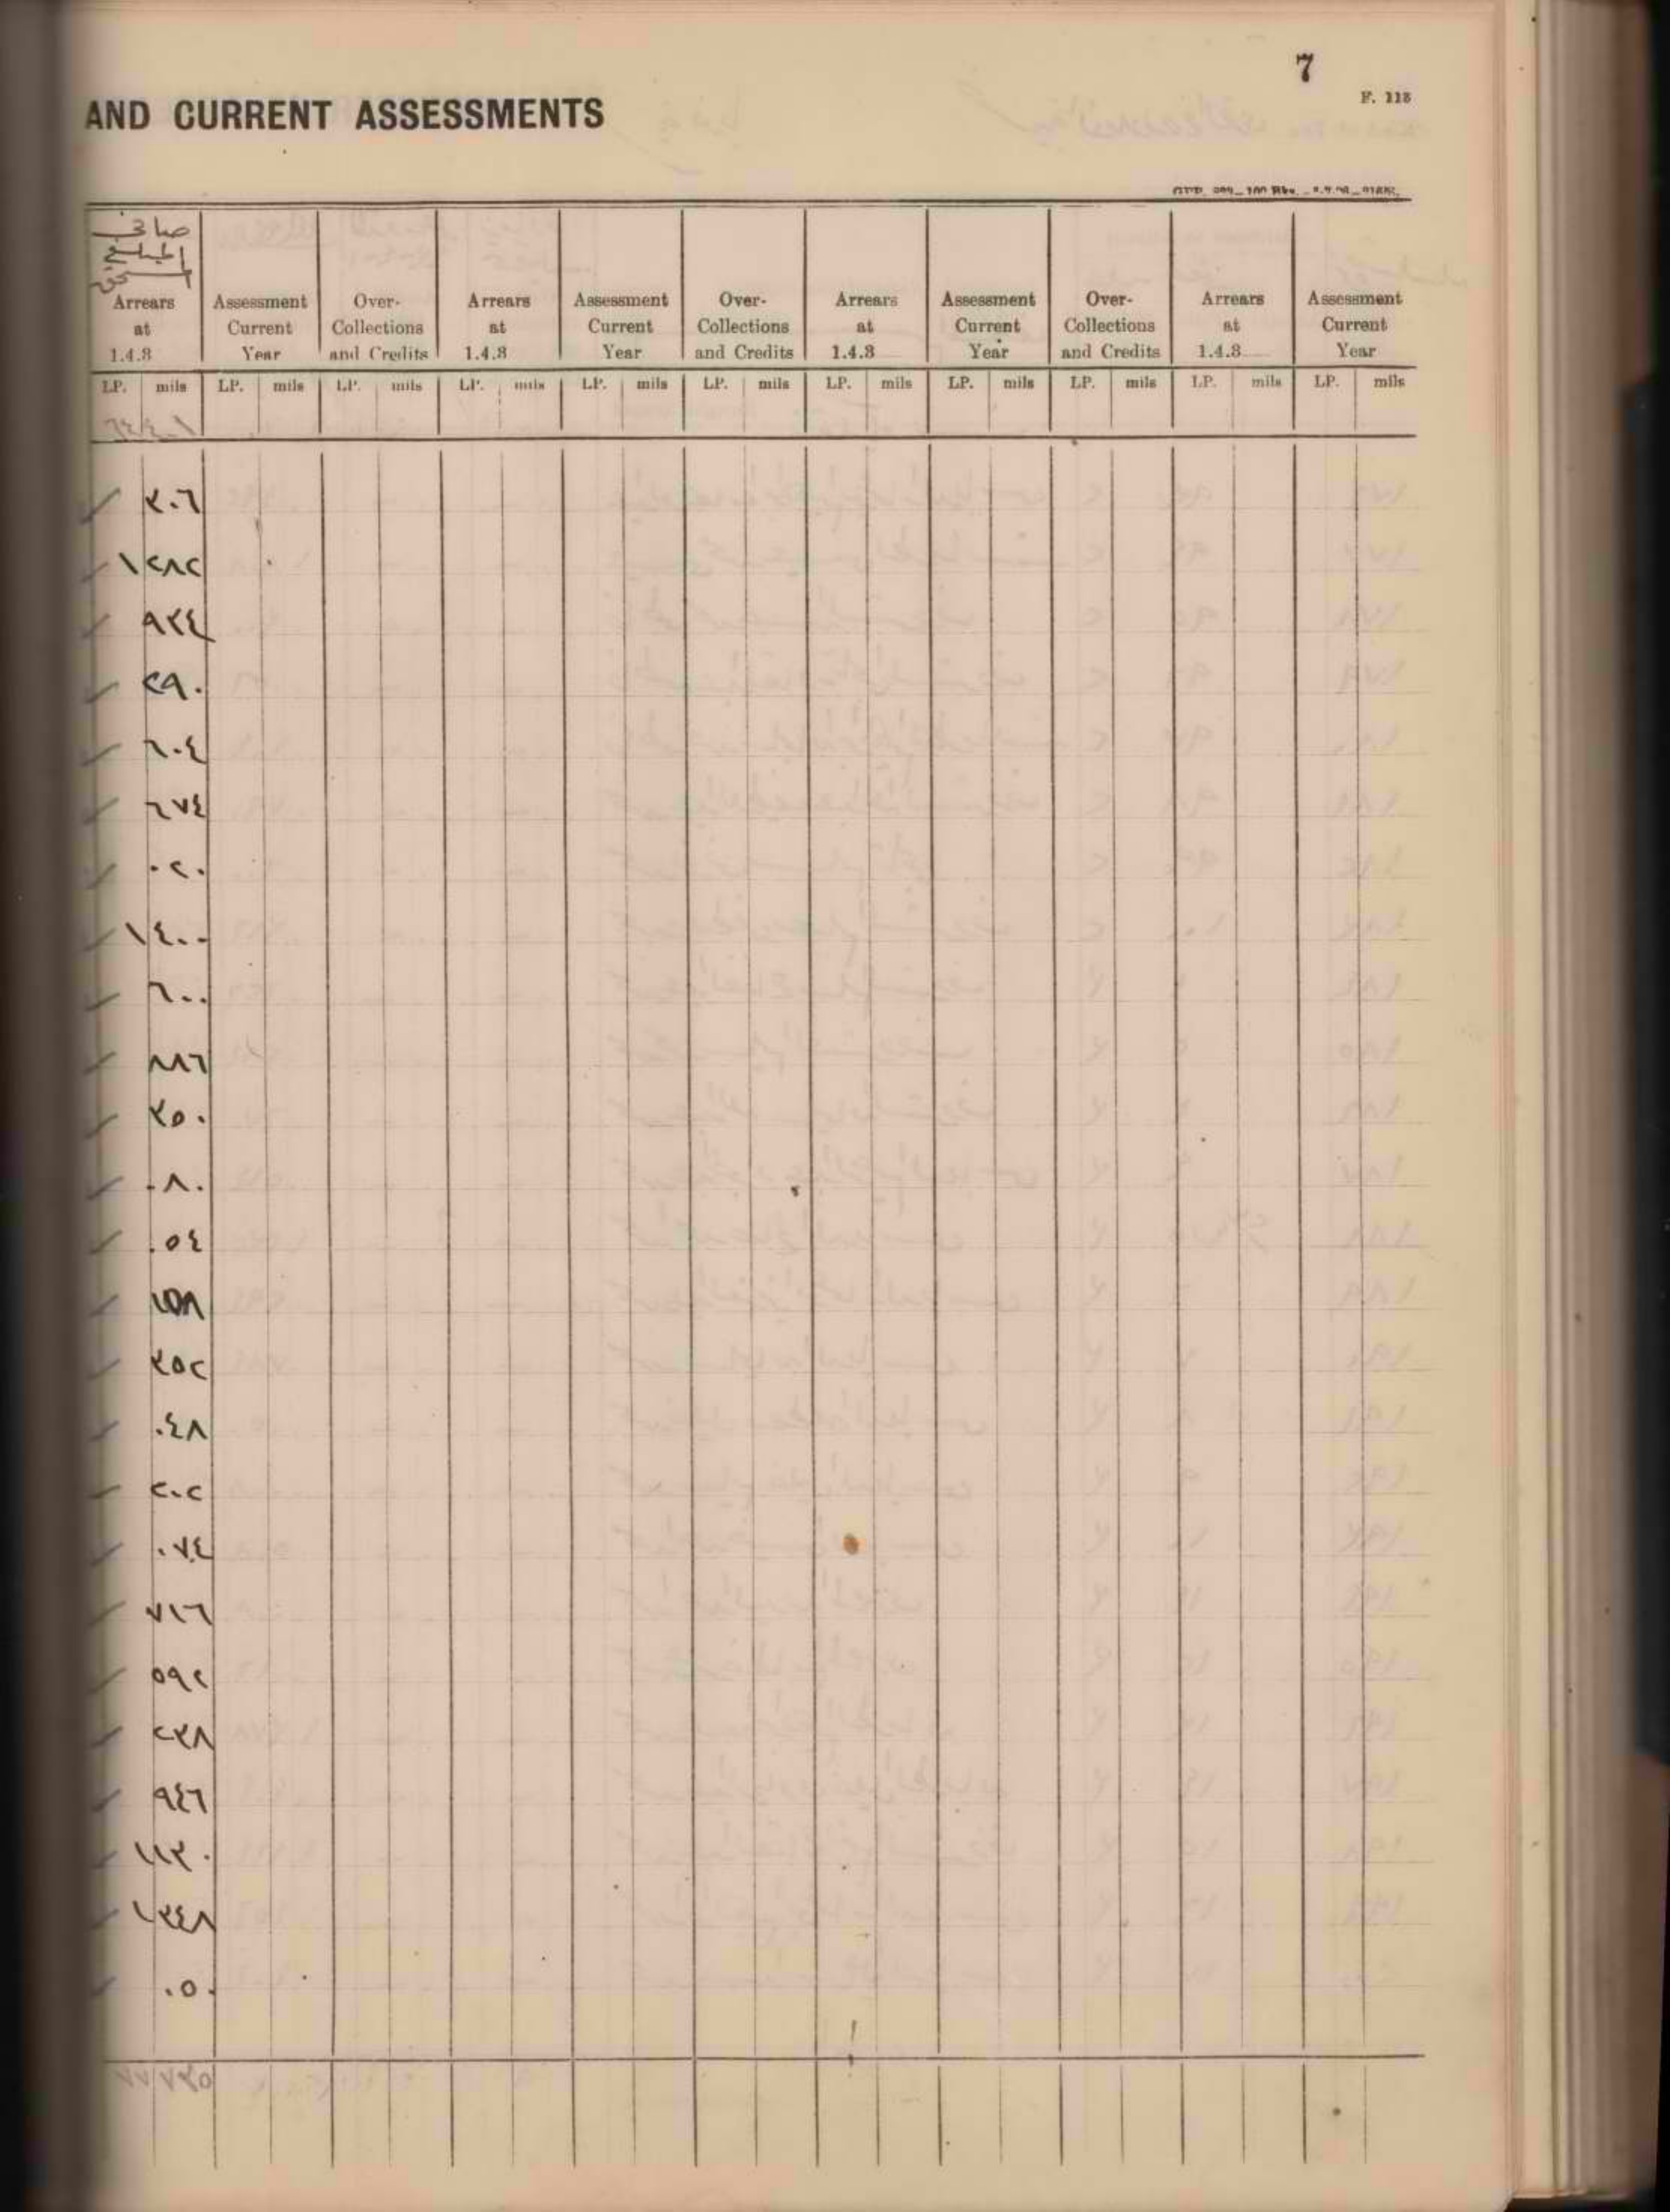 7
F. 118
AND CURRENT ASSESSMENTS
صافي
المبلغ
Arrears at 1.4.3 Assessment Current Year Over-Collections and Credits Arrears at 1.4.3 Assessment Current Year Over-Collections and Credits Arrears at 1.4.3 Assessment Current Year Over-Collections and Credits Arrears at 1.4.3 Assessment Current Year
LP. mils LP. mils LP. mils LP. mils LP. mils LP. mils LP. mils LP. mils LP. mils LP. mils LP. mils
٣٠٦
١ ٢٨٢
٩٣٤
٢٩٠
٦٠٤
٦٧٤
٠٢٠
١ ٤٠٠
٦٠٠
٨٨٦
٣٥٠
٠٨٠
٠٥٤
١٥٨
٣٥٢
٠٤٨
٢٠٢
٠٧٤
٧١٦
٥٩٢
٢٣٨
٩٤٦
١ ١٣٠
١ ٣٤٨
٠٥٠
٧٧ ٧٣٥